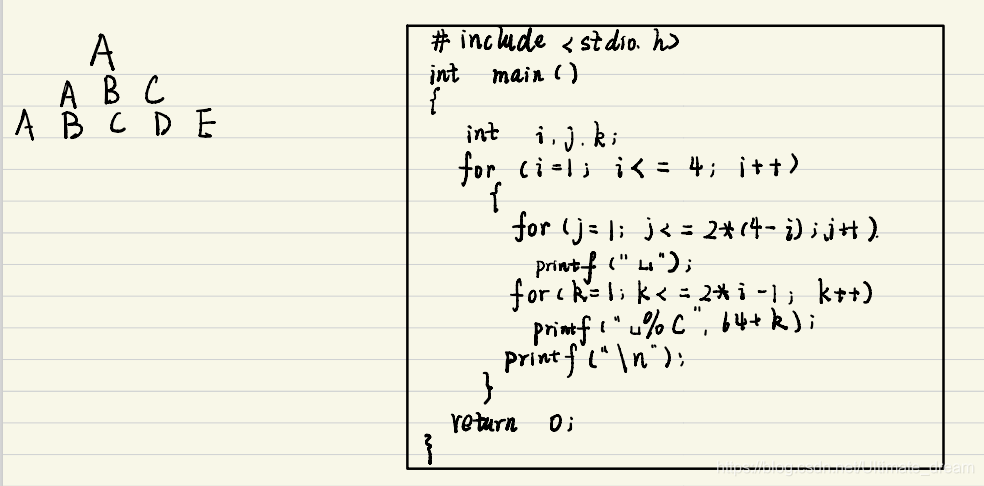 A
A B C
A B C D E
# include <stdio.h>
int main()
{
int i.j.k;
for (i=1; i<=4; i++)
{
for (j=1; j<=2*(4-i);j++)
printf("␣");
for(k=1; k<=2*i-1; k++)
printf("␣%C", 64+k);
printf("\n");
}
return 0;
}
https://blog.csdn.net/Ultimate_dream